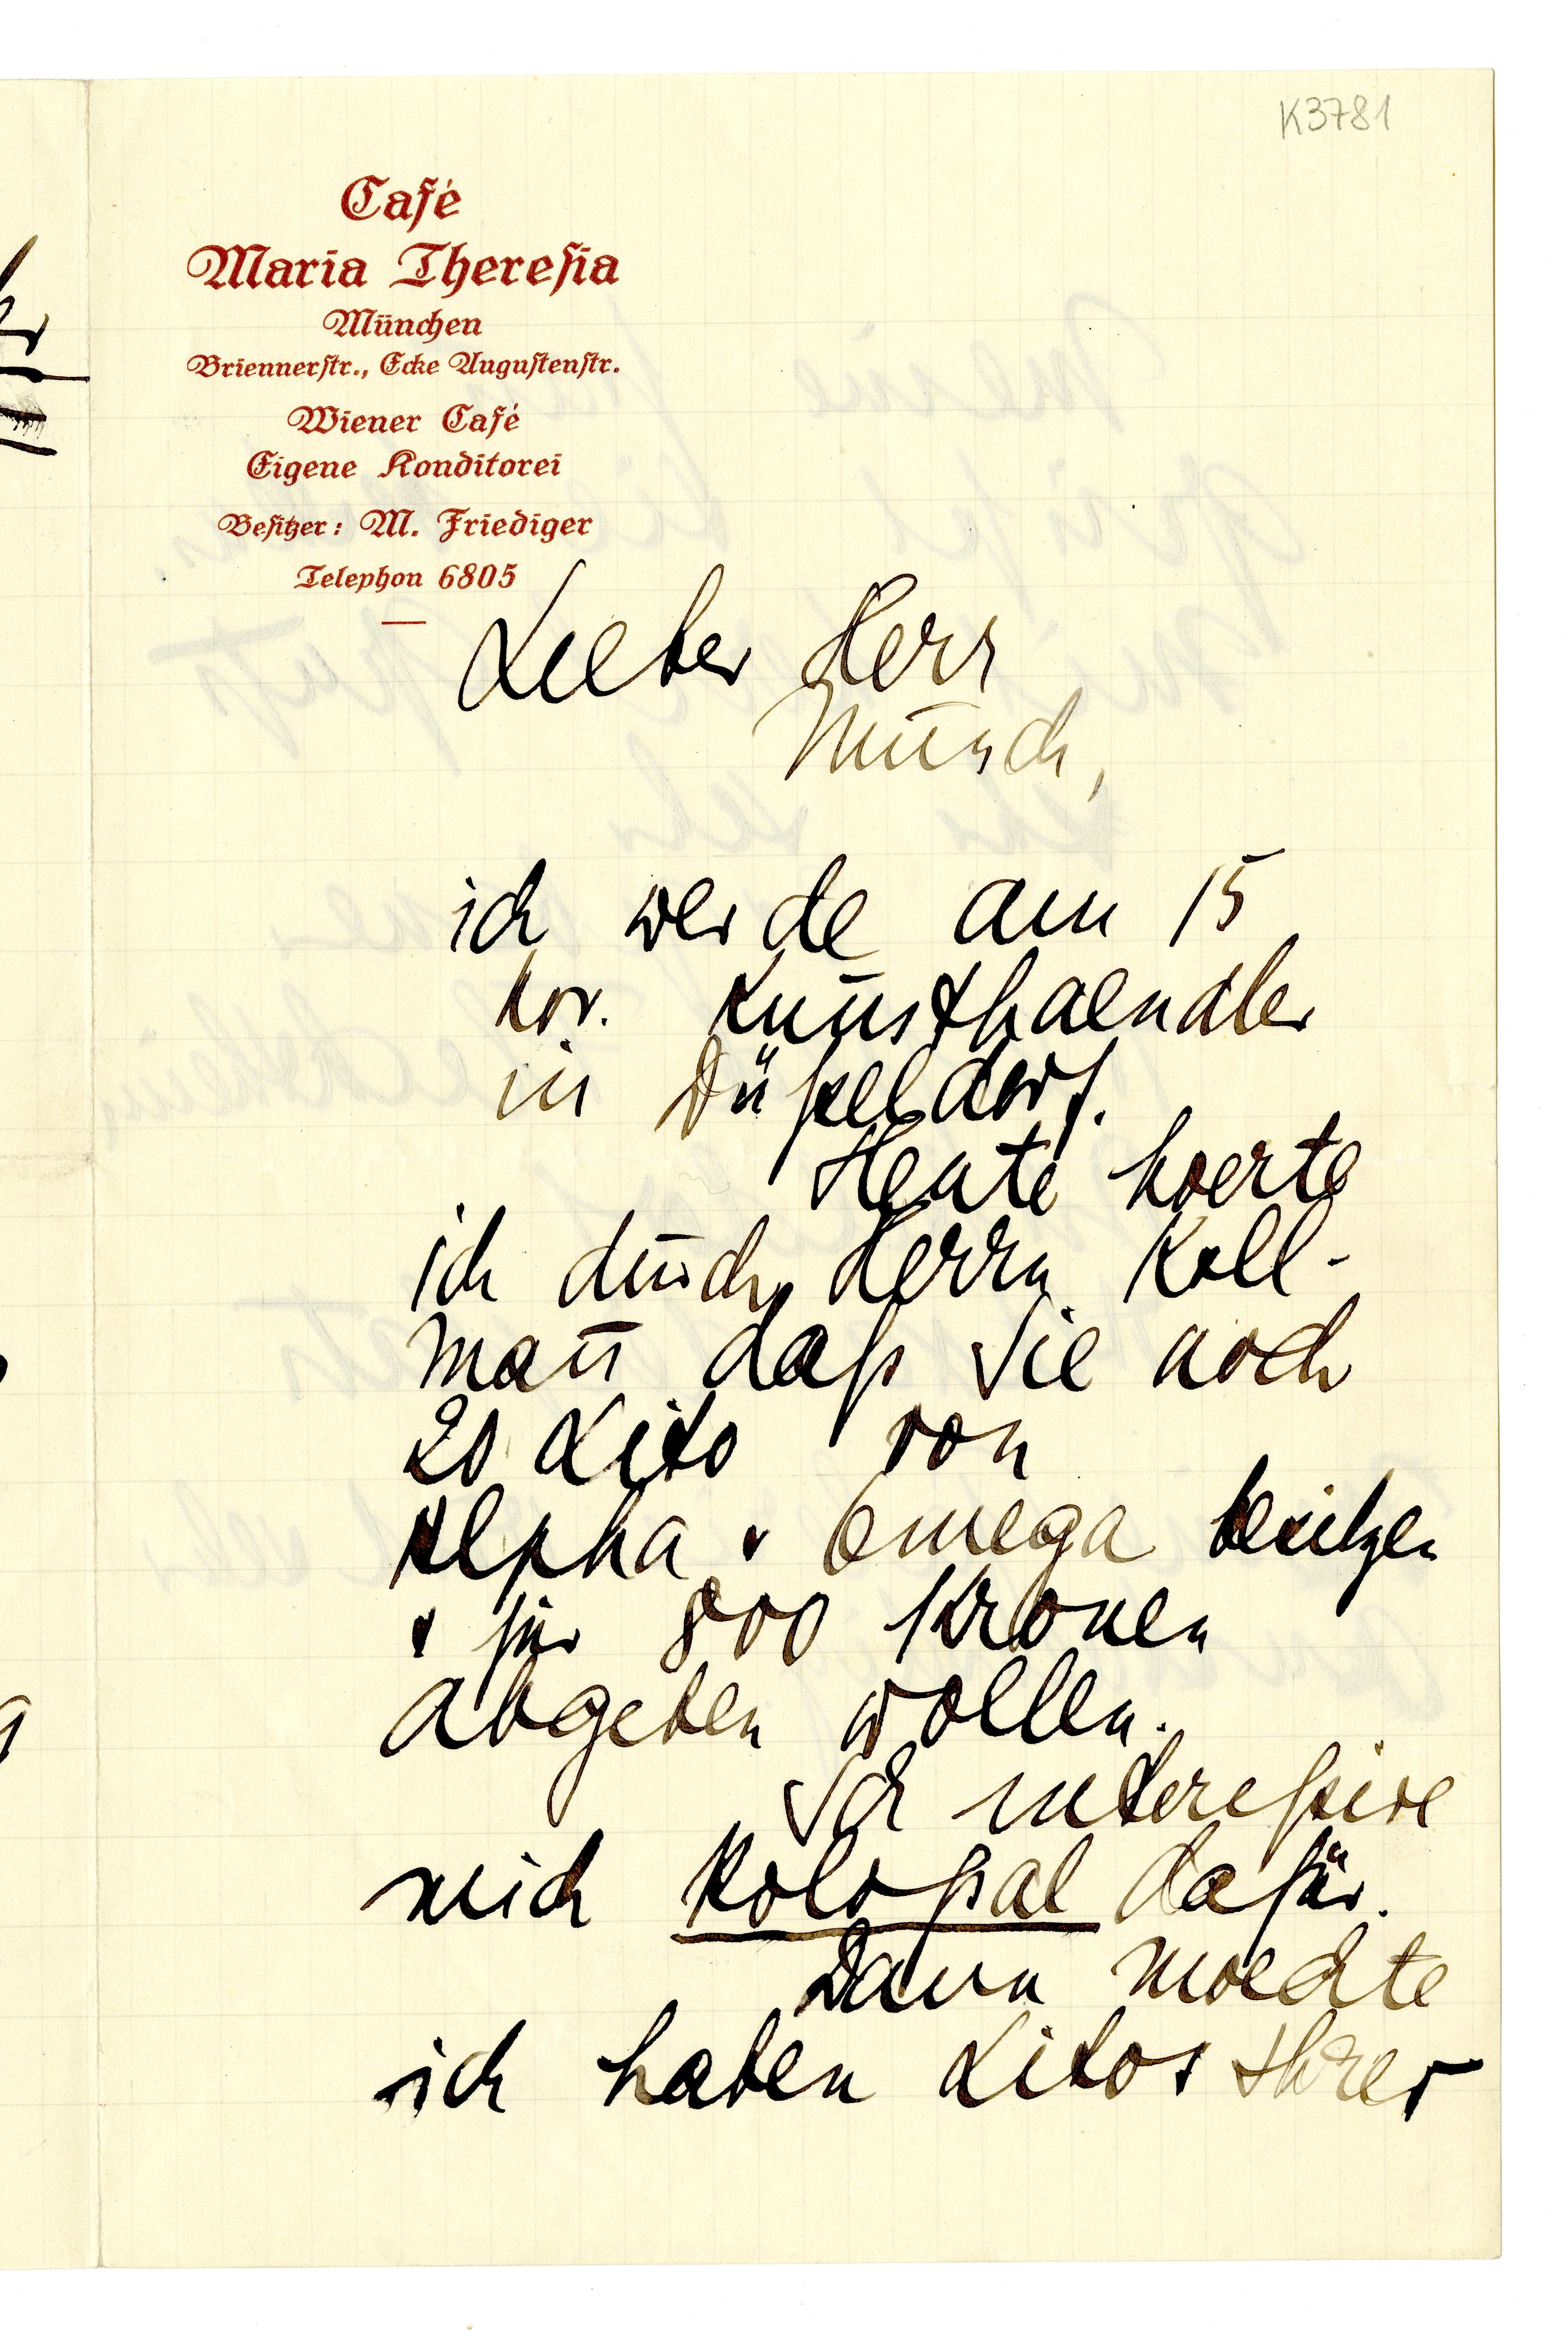 K3781
Café
Maria Theresia
München
Briennerstr., Ecke Augustenstr.
Wiener Café
Eigene Konditorei
Besitzer: M. Friediger
Telephon 6805
Lieber Herr
Munch,
ich werde am 15
Nov. Kunsthaendler
in Düßeldorf.
Heute hoerte
ich durch Herrn Koll-
mañ daß Sie noch
20 Lito von
Alpha & Omega besitzen
& für 800 Kronen
abgeben wollen.
Ich intereßire
mich koloßal dafür.
Dann moechte
ich haben Litos Ihrer